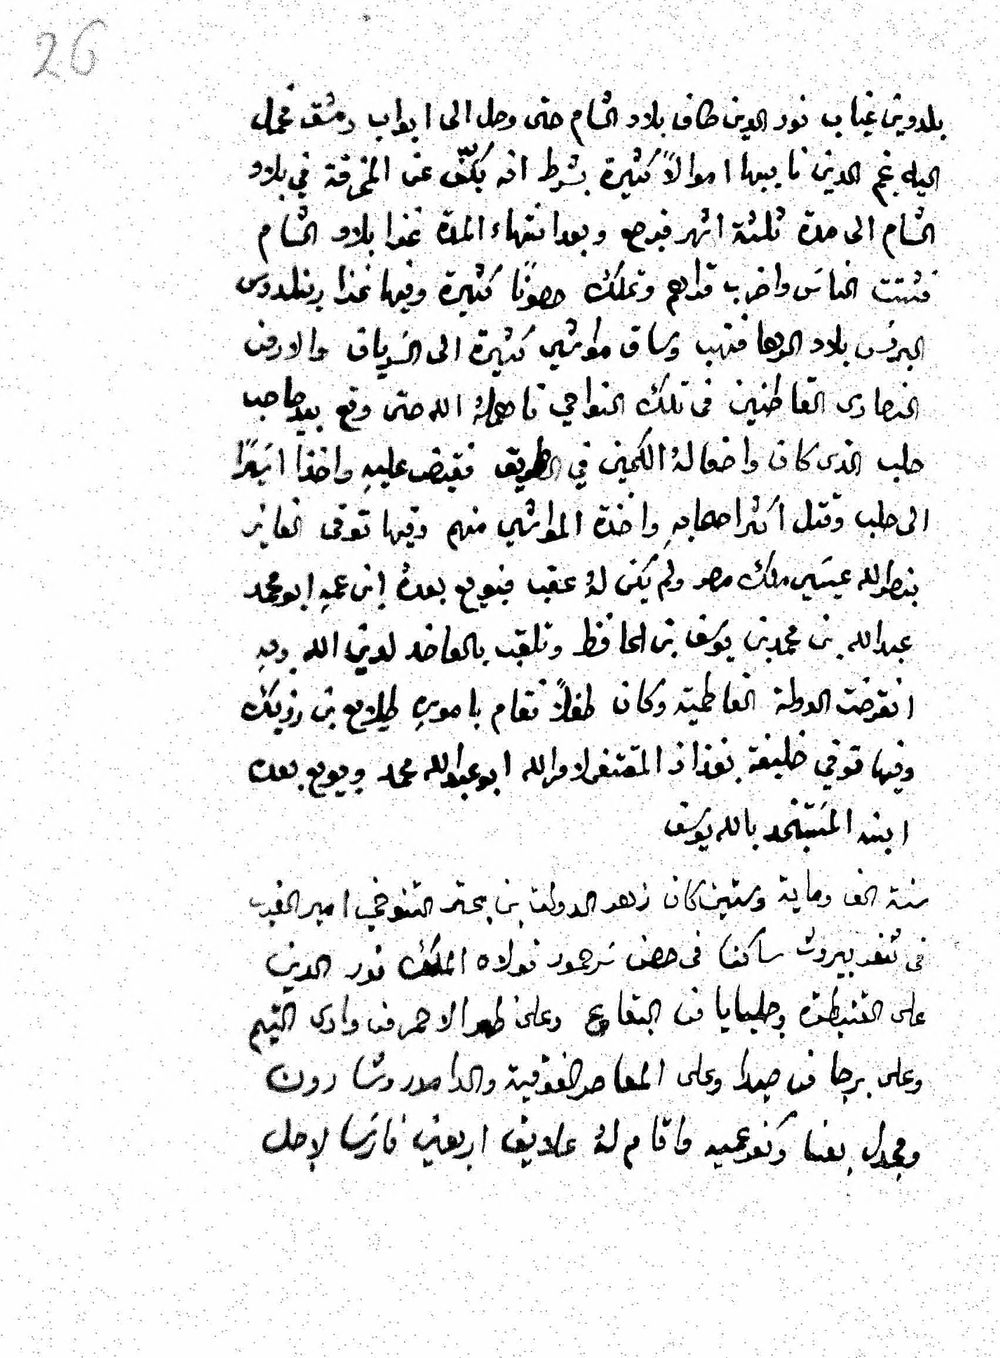 26
بلدوين غياب نور الدين طاف بلاد الشام حتى وصل الى ابواب دمشق فحمل
اليه نجم الدين نايبها اموالاً كثيرة بشرط انه يكفّ عن المخرقة في بلاد
الشام الى مدة ثلثة اشهر فرجع وبعد انتهاء المدة غزا بلاد الشام
فشتت الناس واخرب قراهم وتملك حصونًا كثيرة وفيها غزا رينلدوس
البرنس بلاد الرها فنهب وساق مواشي كثيرة الى السريان والارمن
النصارى القاطنين في تلك النواحي فاهمله الله حتى وقع بيد صاحب
حلب الذي كان واضعا لهُ الكمين في الطريق فقبض عليهِ واخذا اسيرًا
الى حلب وقتل اكثر اصحابهِ واخذة المواشي منهم وفيها توفى الفايز
بنصر الله عيسى ملك مصر ولم يكن لهُ عقب فبويع بعدهُ ابن عمهِ ابو محمد
عبد الله بن محمد بن يوسف بن الحافظ وتلقب بالعاضد لدين الله وبهِ
انقرضت الدولة الفاطمية وكان طفلاً فقام بامورهِ طلايع بن رزيك
وفيها توفي خليفة بغداد المقتفى لامر الله ابو عبد الله محمد وبويع بعده
ابنه المستنجد بالله يوسف
سنة الف وماية وستين كان زهر الدولة بن بحتر التنوخي امير الغرب
في ثغر بيروت ساكنا في حصن سرحمور فولاه الملك نور الدين
على القنيطرة وجلبايا من البقاع وعلى ظهر الاحمر من وادى التيم
وعلى برجا من صيدا وعلى المعاصر الفوقية والدامور وشارون
ومجدل بعنا وكفرعميه واقام لهُ علايق اربعين فارسا لاجل